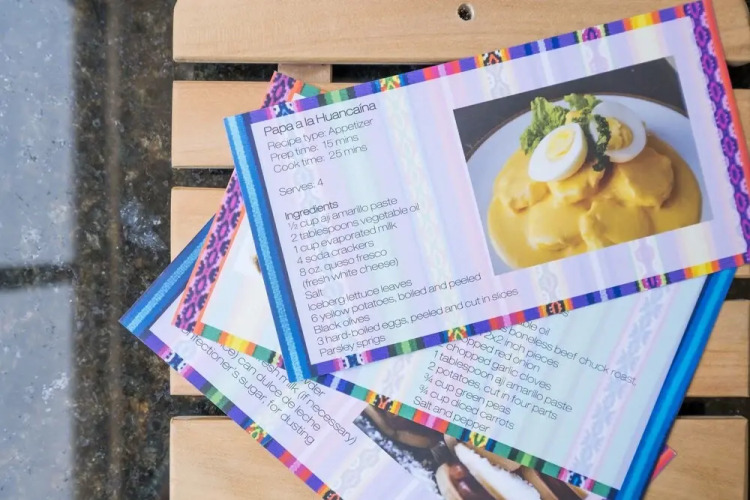 Papa a la Huancaína
Recipe type: Appetizer
Prep time: 15 mins
Cook time: 25 mins
Serves: 4
Ingredients
½ cup aji amarillo paste
2 tablespoons vegetable oil
1 cup evaporated milk
4 soda crackers
8 oz. queso fresco
(fresh white cheese)
Salt
Iceberg lettuce leaves
6 yellow potatoes, boiled and peeled
Black olives
3 hard-boiled eggs, peeled and cut in slices
Parsley sprigs
oil
boneless beef chuck roast,
inch pieces
red onion
chopped garlic cloves
1 tablespoon aji amarillo paste
2 potatoes, cut in four parts
¾ cup green peas
¾ cup diced carrots
Salt and pepper
milk (if necessary)
can dulce de leche
confectioner's sugar, for dusting